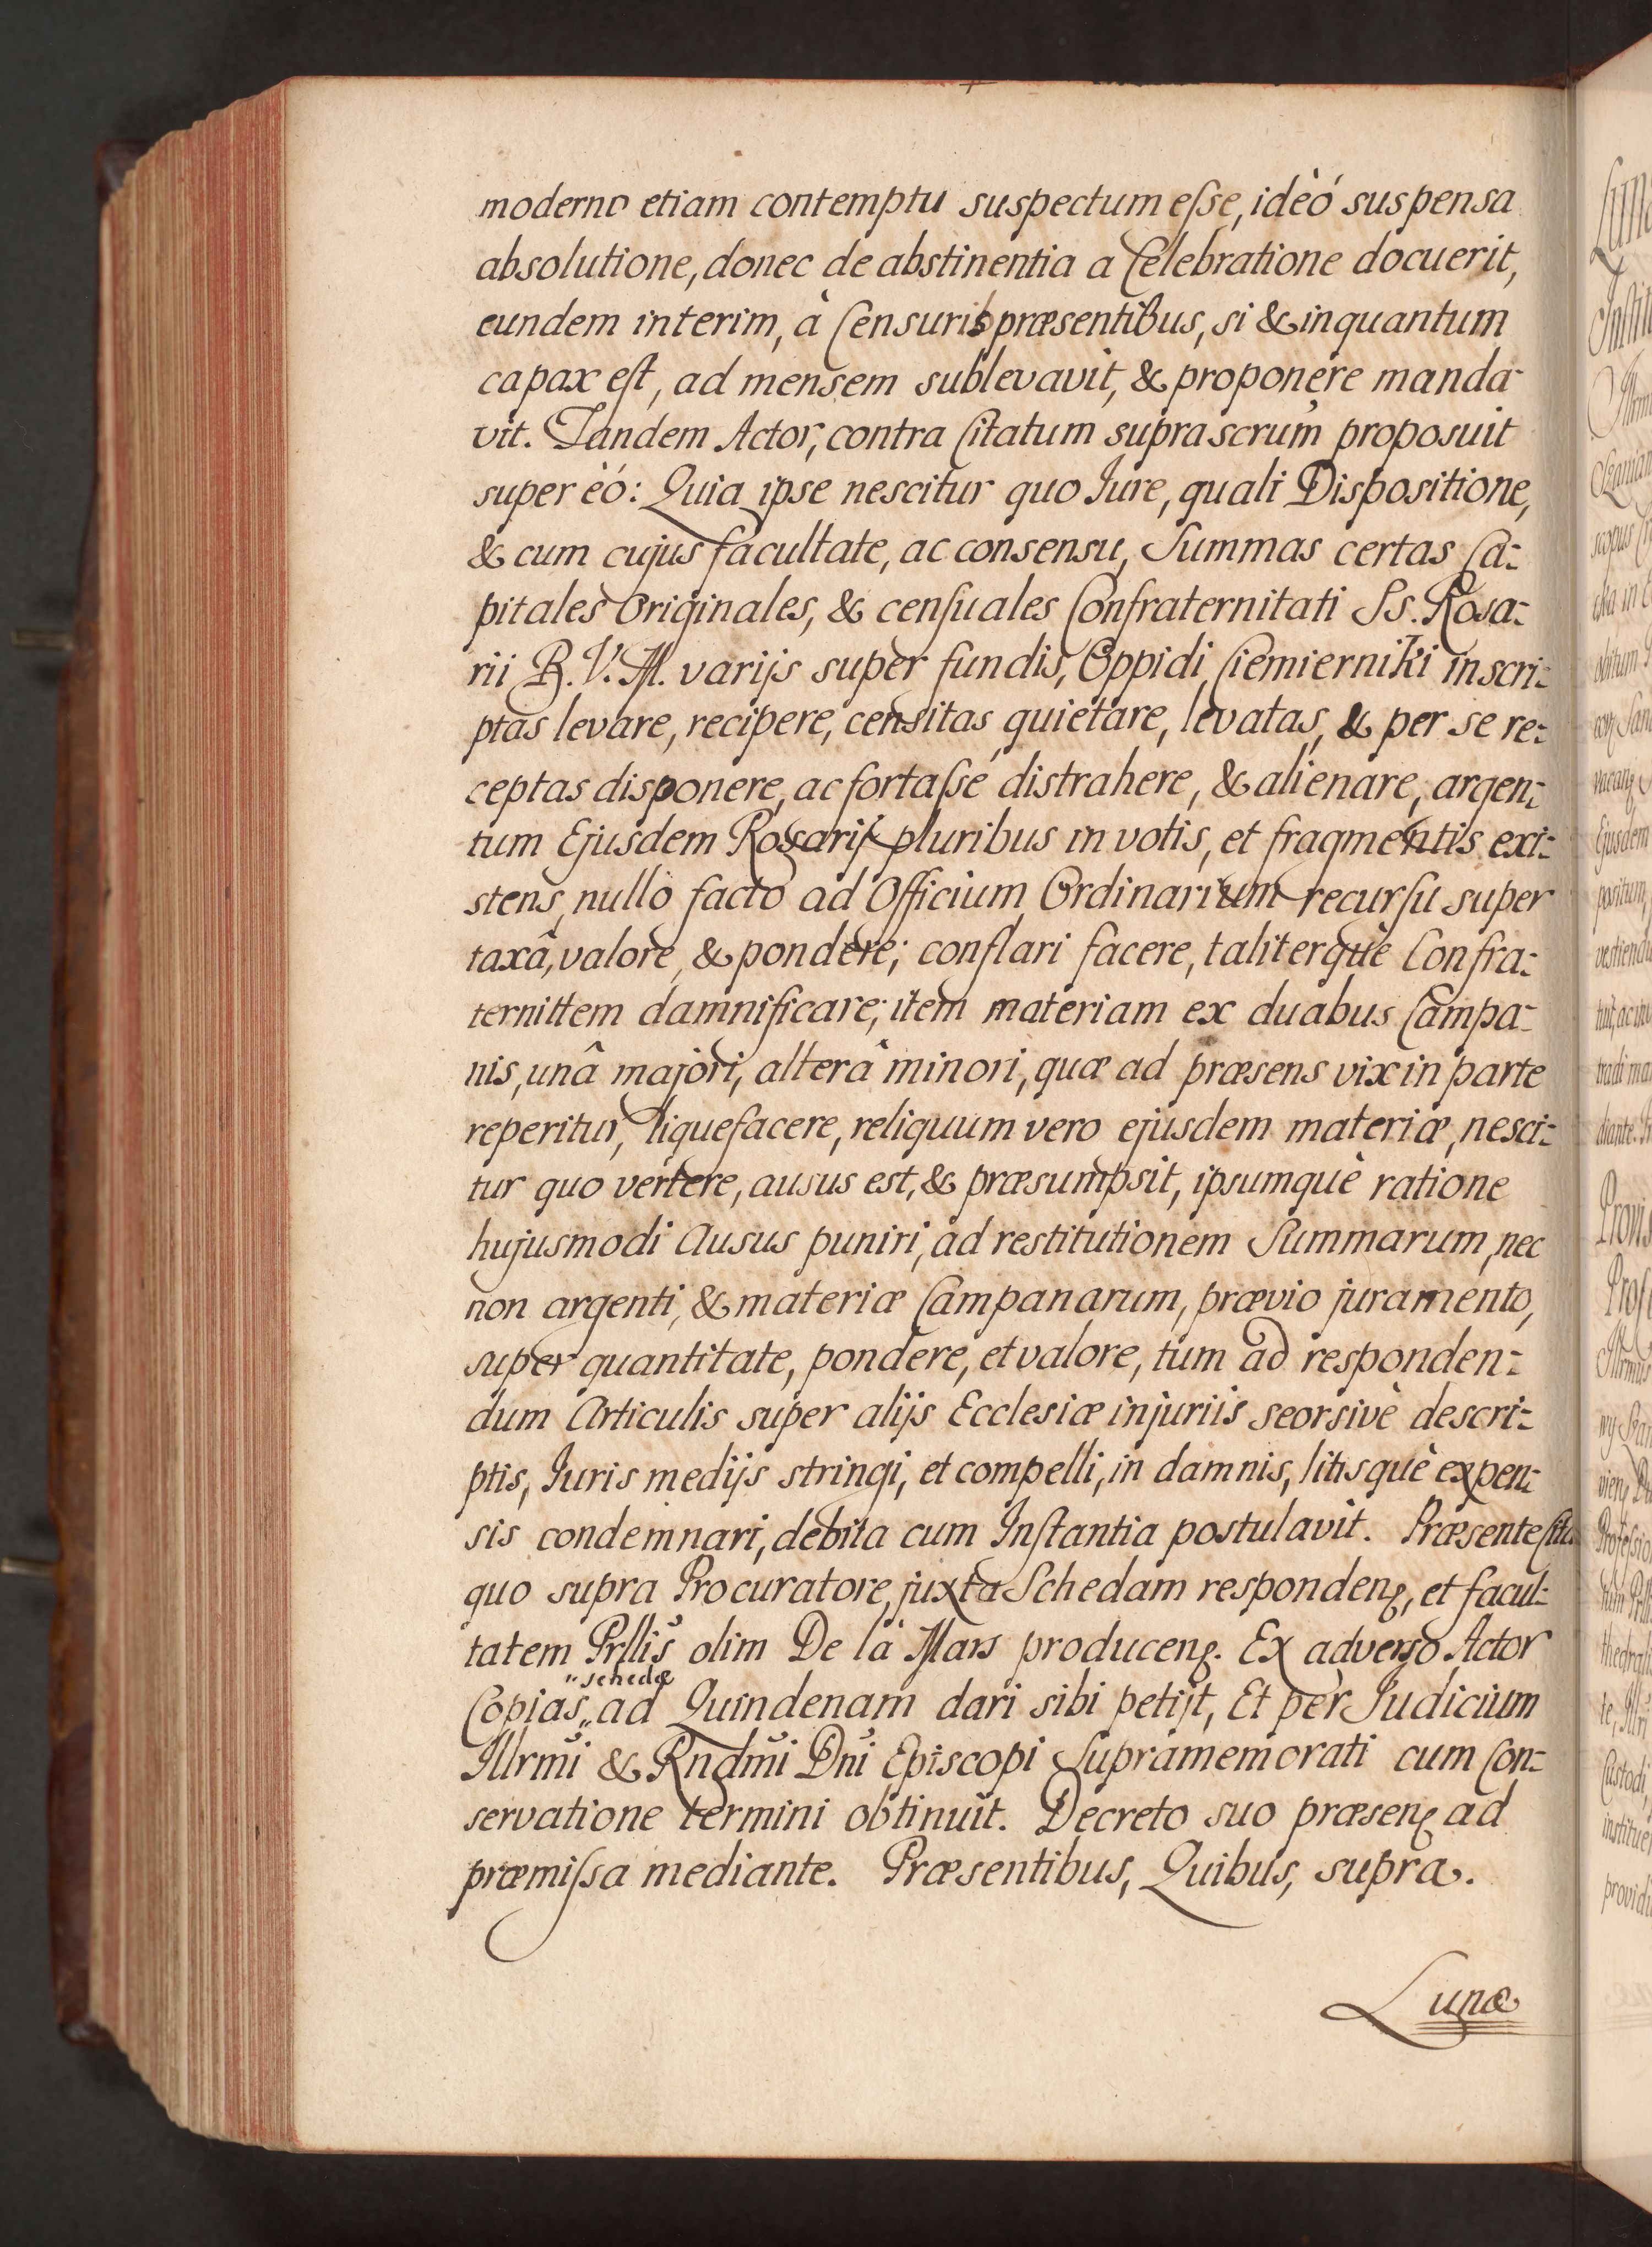 moderno etiam contemptu suspectum eſse, idèó suspensa
absolutione, donec de abstinentia a Celebratione docuerit,
eundem interim, à Censuris præsentibus, si & inquantum
capax eſt, ad mensem sublevavit, & proponere manda-
vit. Tandem Actor, contra Citatum suprascrum̃ proposuit
super èó: Quia ipse nescitur quo Iure, quali Dispositione,
& cum cujus facultate, ac consensu, Summas certas Ca-
pitales Originales, & cenſuales Confraternitati Ss. Rosa-
rii B. V. M. varijs super fundis, Oppidi Ciemierniki inscri-
ptas levare, recipere, censitas quietare, levatas, & per se re-
ceptas disponere, ac fortaſsé distrahere, & alienare, argen-
tum Ejusdem Rosarij pluribus in votis, et fragmentis exi-
stens, nullo facto ad Officium Ordinarium recurſu super
taxâ, valore, & pondere; conflari facere, taliterquè Confra-
ternittem damnificare; item materiam ex duabus Campa-
nis, unâ majori, alterâ minori, quæ ad præsens vix in parte
reperitur, liquefacere, reliquum vero ejusdem materiæ, nesci-
tur quo vertere, ausus est, & præsumpsit, ipsumquè ratione
hujusmodi Ausus puniri, ad restitutionem Summarum, nec
non argenti, & materiæ Campanarum, prævio juramento,
super quantitate, pondere, et valore, tum ad responden-
dum Articulis super alijs Ecclesiæ injuriis seorsivè descri-
ptis, Iuris medijs stringi, et compelli, in damnis, litisquè expen-
sis condemnari, debita cum Inſtantia postulavit. Præsente Cito
quo supra Procuratore, juxta Schedam respondenꝭ, et facul-
tatem Prllis̃ olim De la Mars producenꝭ. Ex adverso Actor
„schedæ
Copias„ ad Quindenam dari sibi petijt, Et per Iudicium
Illrmĩ & Rndmĩ Dnĩ Episcopi Supramemorati cum Con-
servatione termini obtinuit. Decreto suo præsenꝭ ad
præmiſsa mediante. Præsentibus, Quibus, supra.
Lunæ